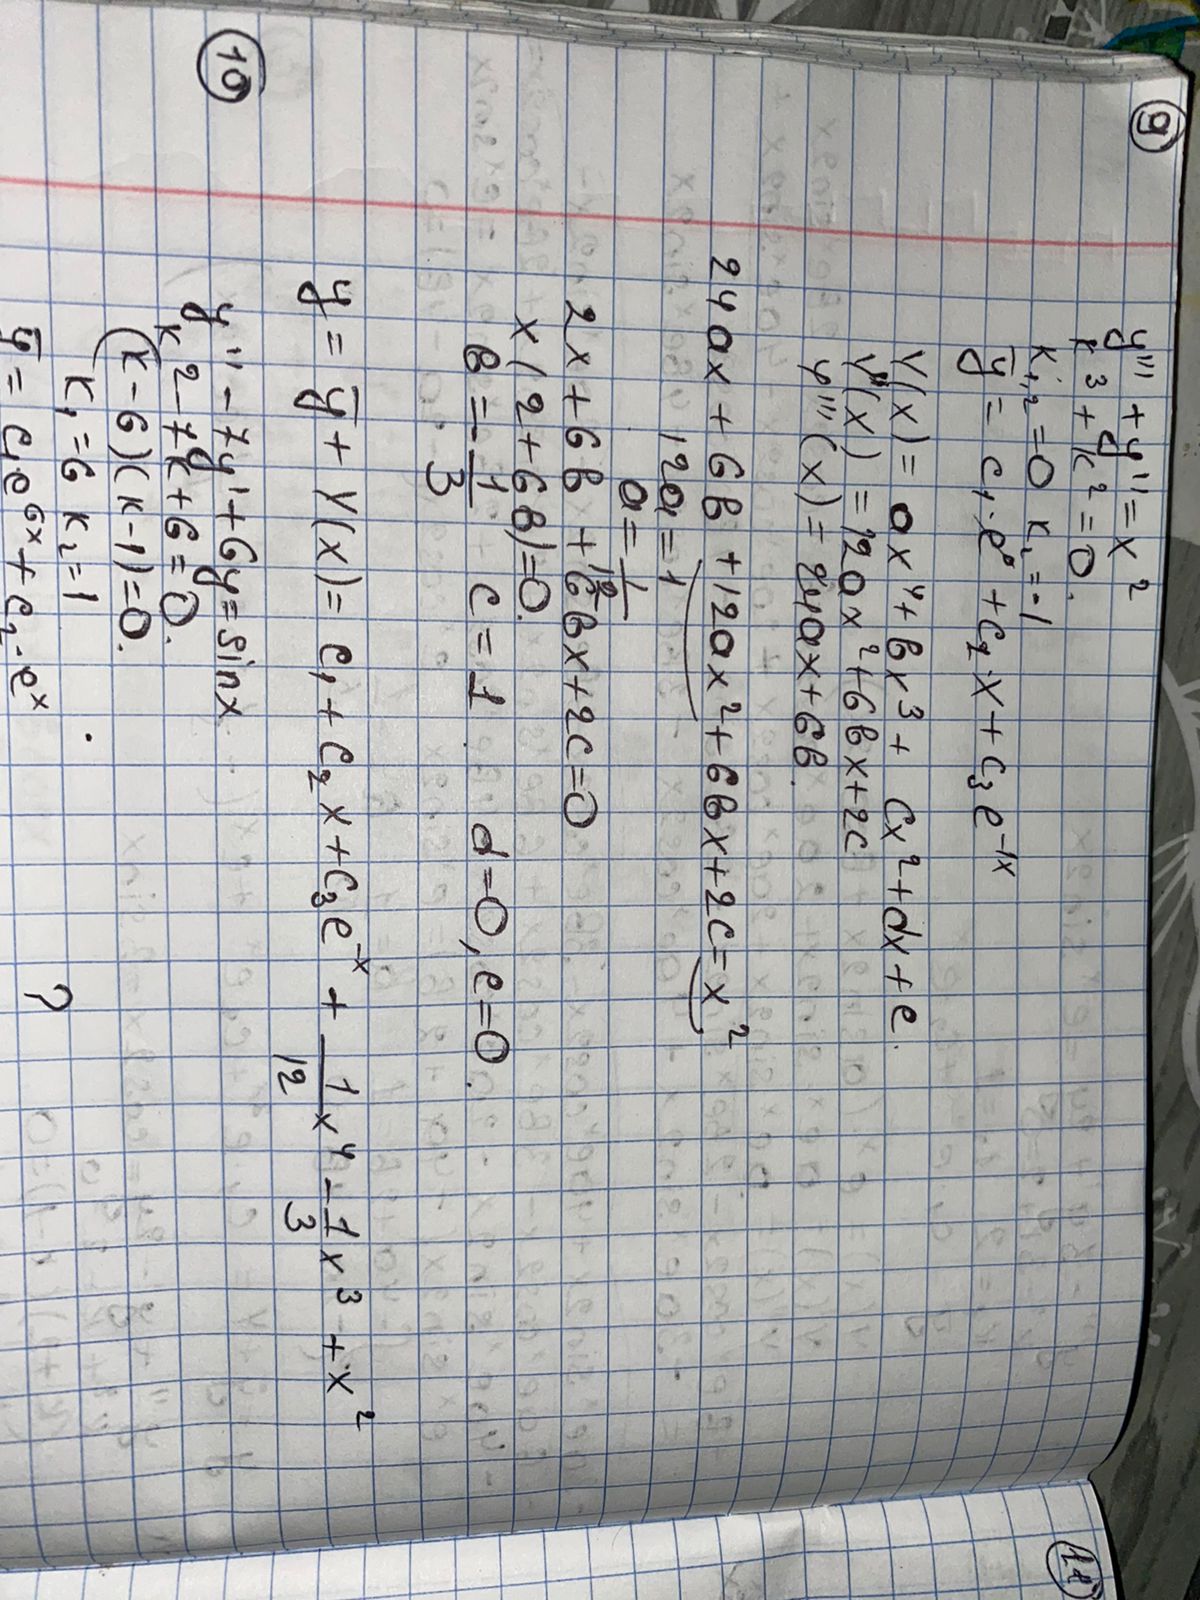 9
y''' + y'' = x²
k³ + k² = 0.
k₁,₂ = 0 k₂ = -1
ȳ = c₁·e⁰ + c₂·x + c₃e⁻¹ˣ
Y(x) = ax⁴ + bx³ + cx² + dx + e.
Y''(x) = 12ax² + 6bx + 2c
Y'''(x) = 24ax + 6b.
24ax + 6b + 12ax² + 6bx + 2c = x²
12a = 1
a = 1/12
2x + 6b + 6bx + 2c = 0
x(2 + 6b) = 0.
b = -1/3 c = 1 d = 0, e = 0.
y = ȳ + Y(x) = c₁ + c₂x + c₃e⁻ˣ + 1/12 x⁴ - 1/3 x³ + x²
10
y'' - 7y' + 6y = sinx
k² - 7k + 6 = 0.
(k - 6)(k - 1) = 0.
k₁ = 6 k₂ = 1
?
ȳ = c₁e⁶ˣ + c₂·eˣ
11